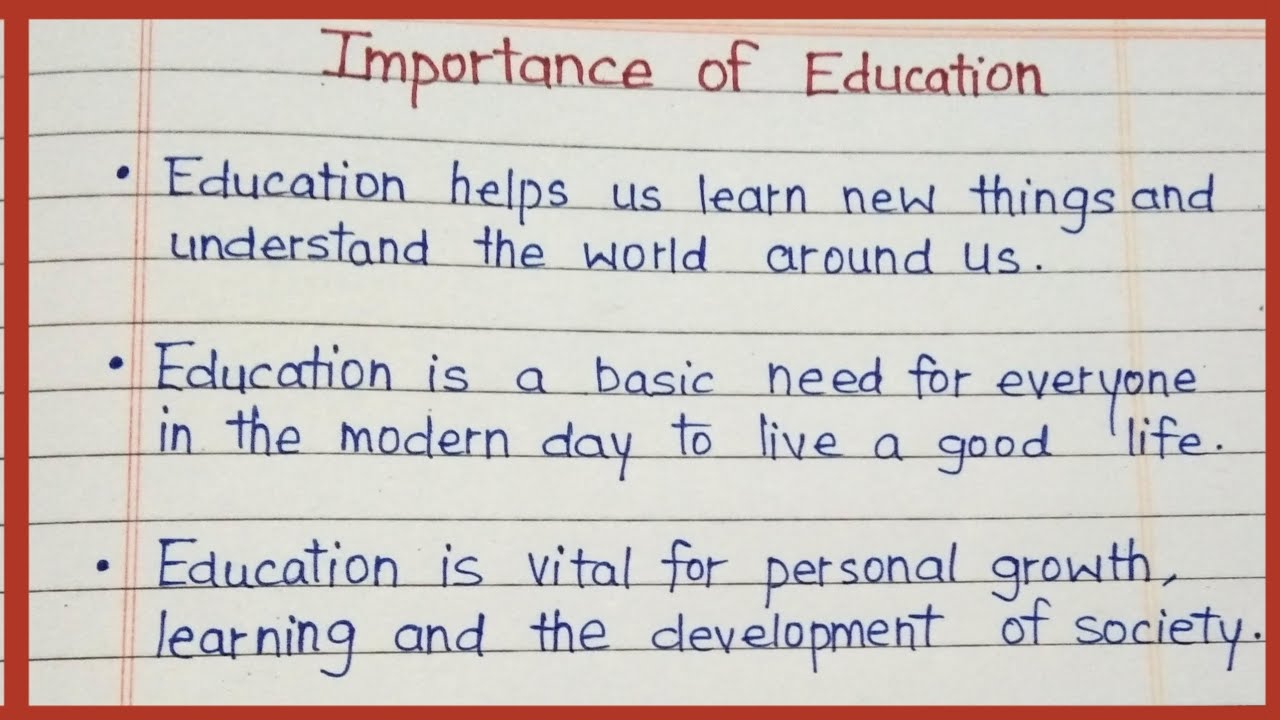 Importance of Education
• Education helps us learn new things and
understand the world around us.
• Education is a basic need for everyone
in the modern day to live a good life.
• Education is vital for personal growth,
learning and the development of society.